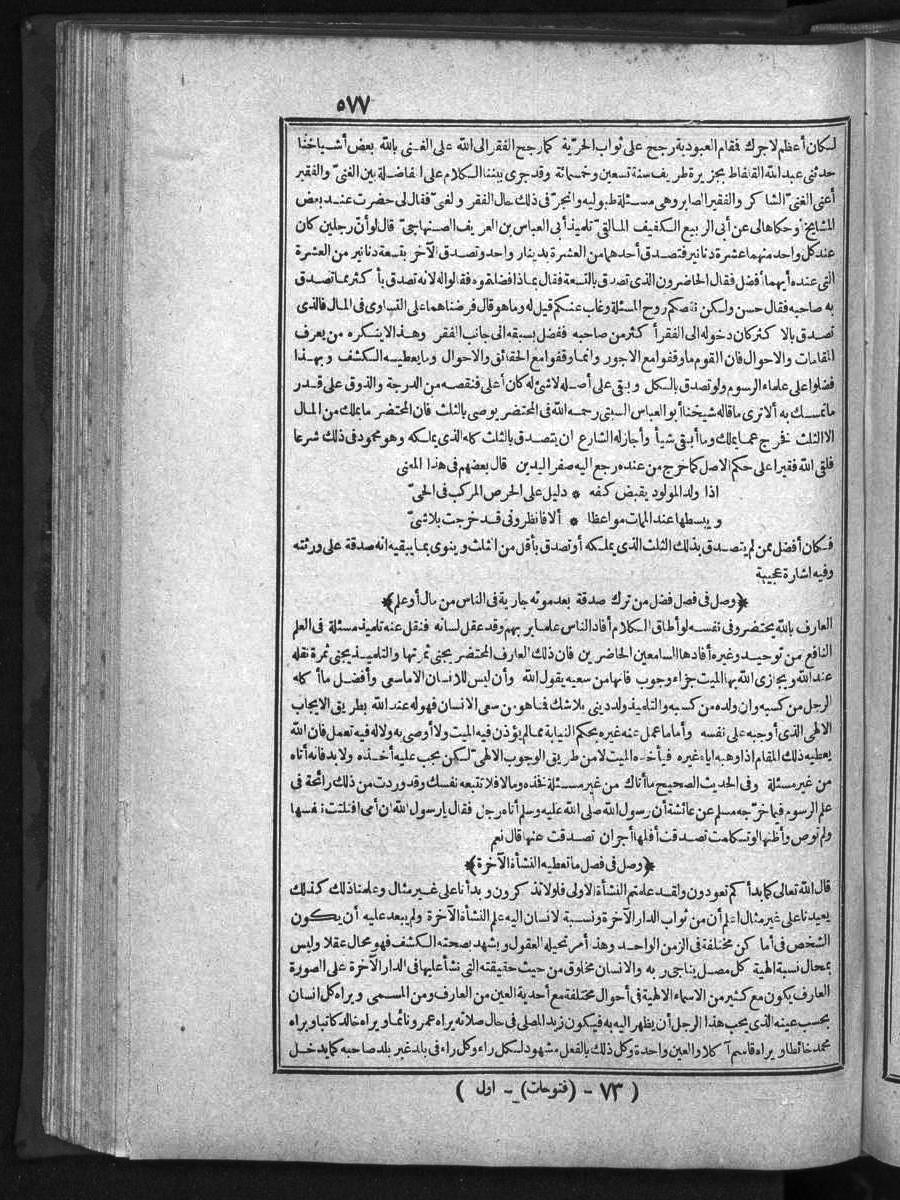 ٥٧٧
لكان أعظم لاجرك فقام العبودية رجح على ثواب الحرّية كما رجح الفقر الى الله على الغنى بالله بعض أشياخنا
حدثنى عبد الله القلفاط بجزيرة طريف سنة تسعين وخمسمائة وقد جرى بيننا الكلام على المفاضلة بين الغنىّ والفقير
أعنى الغنىّ الشاكر والفقير الصابر وهى مسئلة طبولية وانجرّ فى ذلك حال الفقر والغنى فقال لى حضرت عند بعض
المشايخ أو حكاها لى عن أبى الربيع الكفيف المالقىّ تلميذ أبى العباس بن العريف الصنهاجىّ قال لو أن رجلين كان
عند كل واحد منهما عشرة دنانير فتصدق أحدهما من العشرة بدينار واحد وتصدق الآخر بتسعة دنانير من العشرة
التى عنده أيهما أفضل فقال الحاضرون الذى تصدق بالتسعة فقال بماذا فضلتموه فقالوا له لانه تصدق بأكثر مما تصدق
به صاحبه فقال حسن ولكن نقصكم روح المسئلة وغاب عنكم قيل له وما هو قال فرضناهما على التساوى فى المال فالذى
تصدق بالاكثر كان دخوله الى الفقر أكثر من صاحبه ففضل بسبقه الى جانب الفقر وهذا لا ينكره من يعرف
المقامات والاحوال فان القوم ما وقفوا مع الاجور وانما وقفوا مع الحقائق والاحوال وما يعطيه الكشف وبهذا
فضلوا على علماء الرسوم ولو تصدق بالكل وبقى على أصله لاشئ له كان أعلى فنقصه من الدرجة والذوق على قدر
ما تمسك به ألا ترى ما قاله شيخنا أبو العباس السبتى رحمه الله فى المحتضر يوصى بالثلث فان المحتضر ما يملك من المال
الا الثلث فخرج عما يملك وما أبقى شيأ وأجاز له الشارع ان يتصدق بالثلث كله الذى يملكه وهو محمود فى ذلك شرعا
فلقى الله فقيرا على حكم الاصل كما خرج من عنده رجع اليه صفر اليدين قال بعضهم فى هذا المعنى
اذا ولد المولود يقبض كفه * دليل على الحرص المركب فى الحىّ
ويبسطها عند الممات مواعظا * ألا فانظرونى قد خرجت بلاشىّ
فكان أفضل ممن لم يتصدق بذلك الثلث الذى يملكه أو تصدق بأقل من الثلث وينوى بما يبقيه انه صدقة على ورثته
وفيه اشارة عجيبة
﴿وصل فى فصل فضل من ترك صدقة بعد موته جارية فى الناس من مال أو علم﴾
العارف بالله يحتضر وفى نفسه لو أطاق الكلام أفاد الناس علما بربهم وقد عقل لسانه فنقل عنه تلميذ مسئلة فى العلم
النافع من توحيد وغيره أفادها السامعين الحاضرين فان ذلك العارف المحتضر يجنى ثمرتها والتلميذ يجنى ثمرة نقله
عند الله ويجازى الله بها الميت جزاء وجوب فانها من سعيه يقول الله وأن ليس للانسان الا ما سعى وأفضل ما أكله
الرجل من كسبه وان ولده من كسبه والتلميذ ولد دينى بلا شك فما هو من سعى الانسان فهو له عند الله بطريق الايجاب
الالهى الذى أوجبه على نفسه وأما ما عمل عنه غيره بحكم النيابة مما لم يؤذن فيه الميت ولا أوصى به ولا له فيه تعمل فان الله
يعطيه ذلك المقام اذا وهبه اياه غيره فيأخذه الميت لا من طريق الوجوب الالهىّ لكن يجب عليه أخذه ولا بد فانه أتاه
من غير مسئلة وفى الحديث الصحيح ما أتاك من غير مسئلة فخذه وما لا فلا تتبعه نفسك وقد وردت من ذلك رائحة فى
علم الرسوم فيما خرّجه مسلم عن عائشة أن رسول الله صلى الله عليه وسلم أتاه رجل فقال يا رسول الله ان أمى افتلتت نفسها
ولم توص وأظنها لو تكلمت تصدقت أفلها أجر ان تصدقت عنها قال نعم
﴿وصل فى فصل ما تعطيه النشأة الآخرة﴾
قال الله تعالى كما بدأكم تعودون ولقد علمتم النشأة الاولى فلولا تذكرون وبدأنا على غير مثال وعلمنا ذلك كذلك
يعيدنا على غير مثال اعلم أن من ثواب الدار الآخرة ونسبة الانسان اليه علم النشأة الآخرة ولم يبعد عليه أن يكون
الشخص فى أماكن مختلفة فى الزمن الواحد وهذا أمر تحيله العقول ويشهد بصحته الكشف فهو محال عقلا وليس
بمحال نسبة الهية كل مصل يناجى ربه والانسان مخلوق من حيث حقيقته التى نشأ عليها فى الدار الآخرة على الصورة
العارف يكون مع كثير من الاسماء الالهية فى أحوال مختلفة مع أحدية العين من العارف ومن المسمى ويراه كل انسان
بحسب عينه الذى يحب هذا الرجل أن يظهر اليه به فيكون زيد المصلى فى حال صلاته يراه عمرو نائما ويراه خالد كاتبا ويراه
محمد خائطا ويراه قاسم آكلا والعين واحدة وكل ذلك بالفعل مشهود لكل راء وكل راء فى بلد غير بلد صاحبه كما يدخل
( ٧٣ - (فتوحات) - اول )